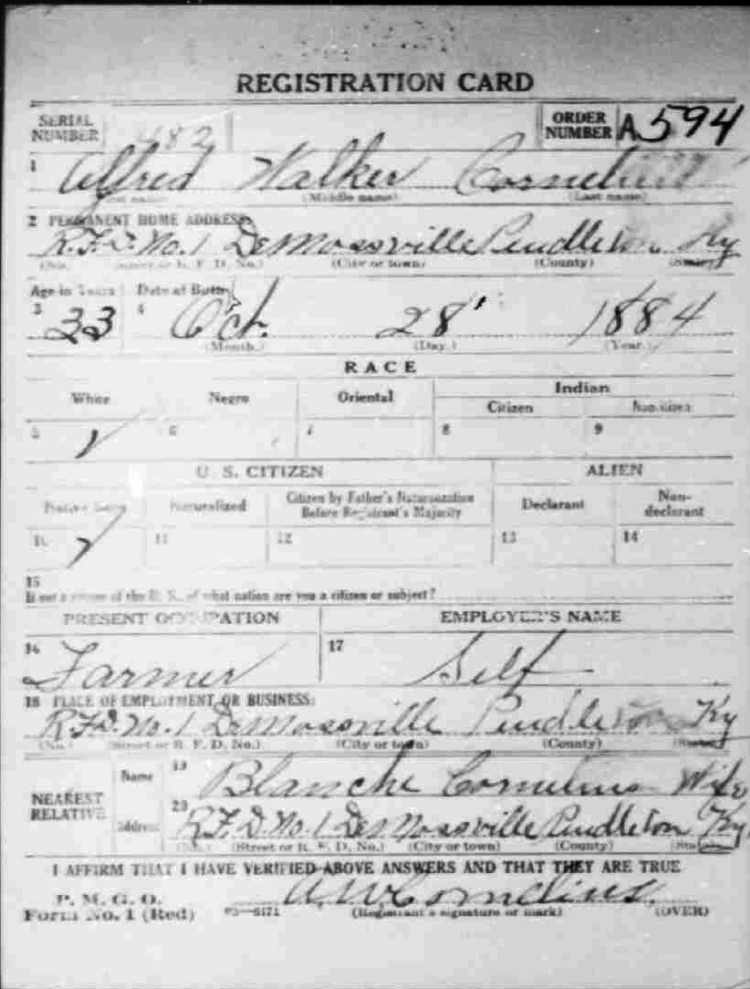 REGISTRATION CARD
SERIAL NUMBER 482 ORDER NUMBER A594
1 Alfred Walker Cornelius
(First name) (Middle name) (Last name)
2 PERMANENT HOME ADDRESS:
R.F.D. No. 1 DeMossville Pendleton Ky
(No.) (Street or R. F. D. No.) (City or town) (County) (State)
Age in Years Date of Birth
3 33 4 Oct. 28 1884
(Month.) (Day.) (Year.)
RACE
White Negro Oriental Indian
Citizen Noncitizen
5 ✓ 6 7 8 9
U. S. CITIZEN ALIEN
Native Born Naturalized Citizen by Father's Naturalization Before Registrant's Majority Declarant Non-declarant
10 ✓ 11 12 13 14
15
If not a citizen of the U. S., of what nation are you a citizen or subject?
PRESENT OCCUPATION EMPLOYER'S NAME
16 Farmer 17 Self
18 PLACE OF EMPLOYMENT OR BUSINESS:
R.F.D. No. 1 DeMossville Pendleton Ky
(No.) (Street or R. F. D. No.) (City or town) (County) (State)
NEAREST RELATIVE
Name 19 Blanche Cornelius Wife
Address 20 R.F.D. No. 1 DeMossville Pendleton Ky.
(No.) (Street or R. F. D. No.) (City or town) (County) (State)
I AFFIRM THAT I HAVE VERIFIED ABOVE ANSWERS AND THAT THEY ARE TRUE
P. M. G. O.
Form No. 1 (Red) 03-6171 A W Cornelius.
(Registrant's signature or mark) (OVER)